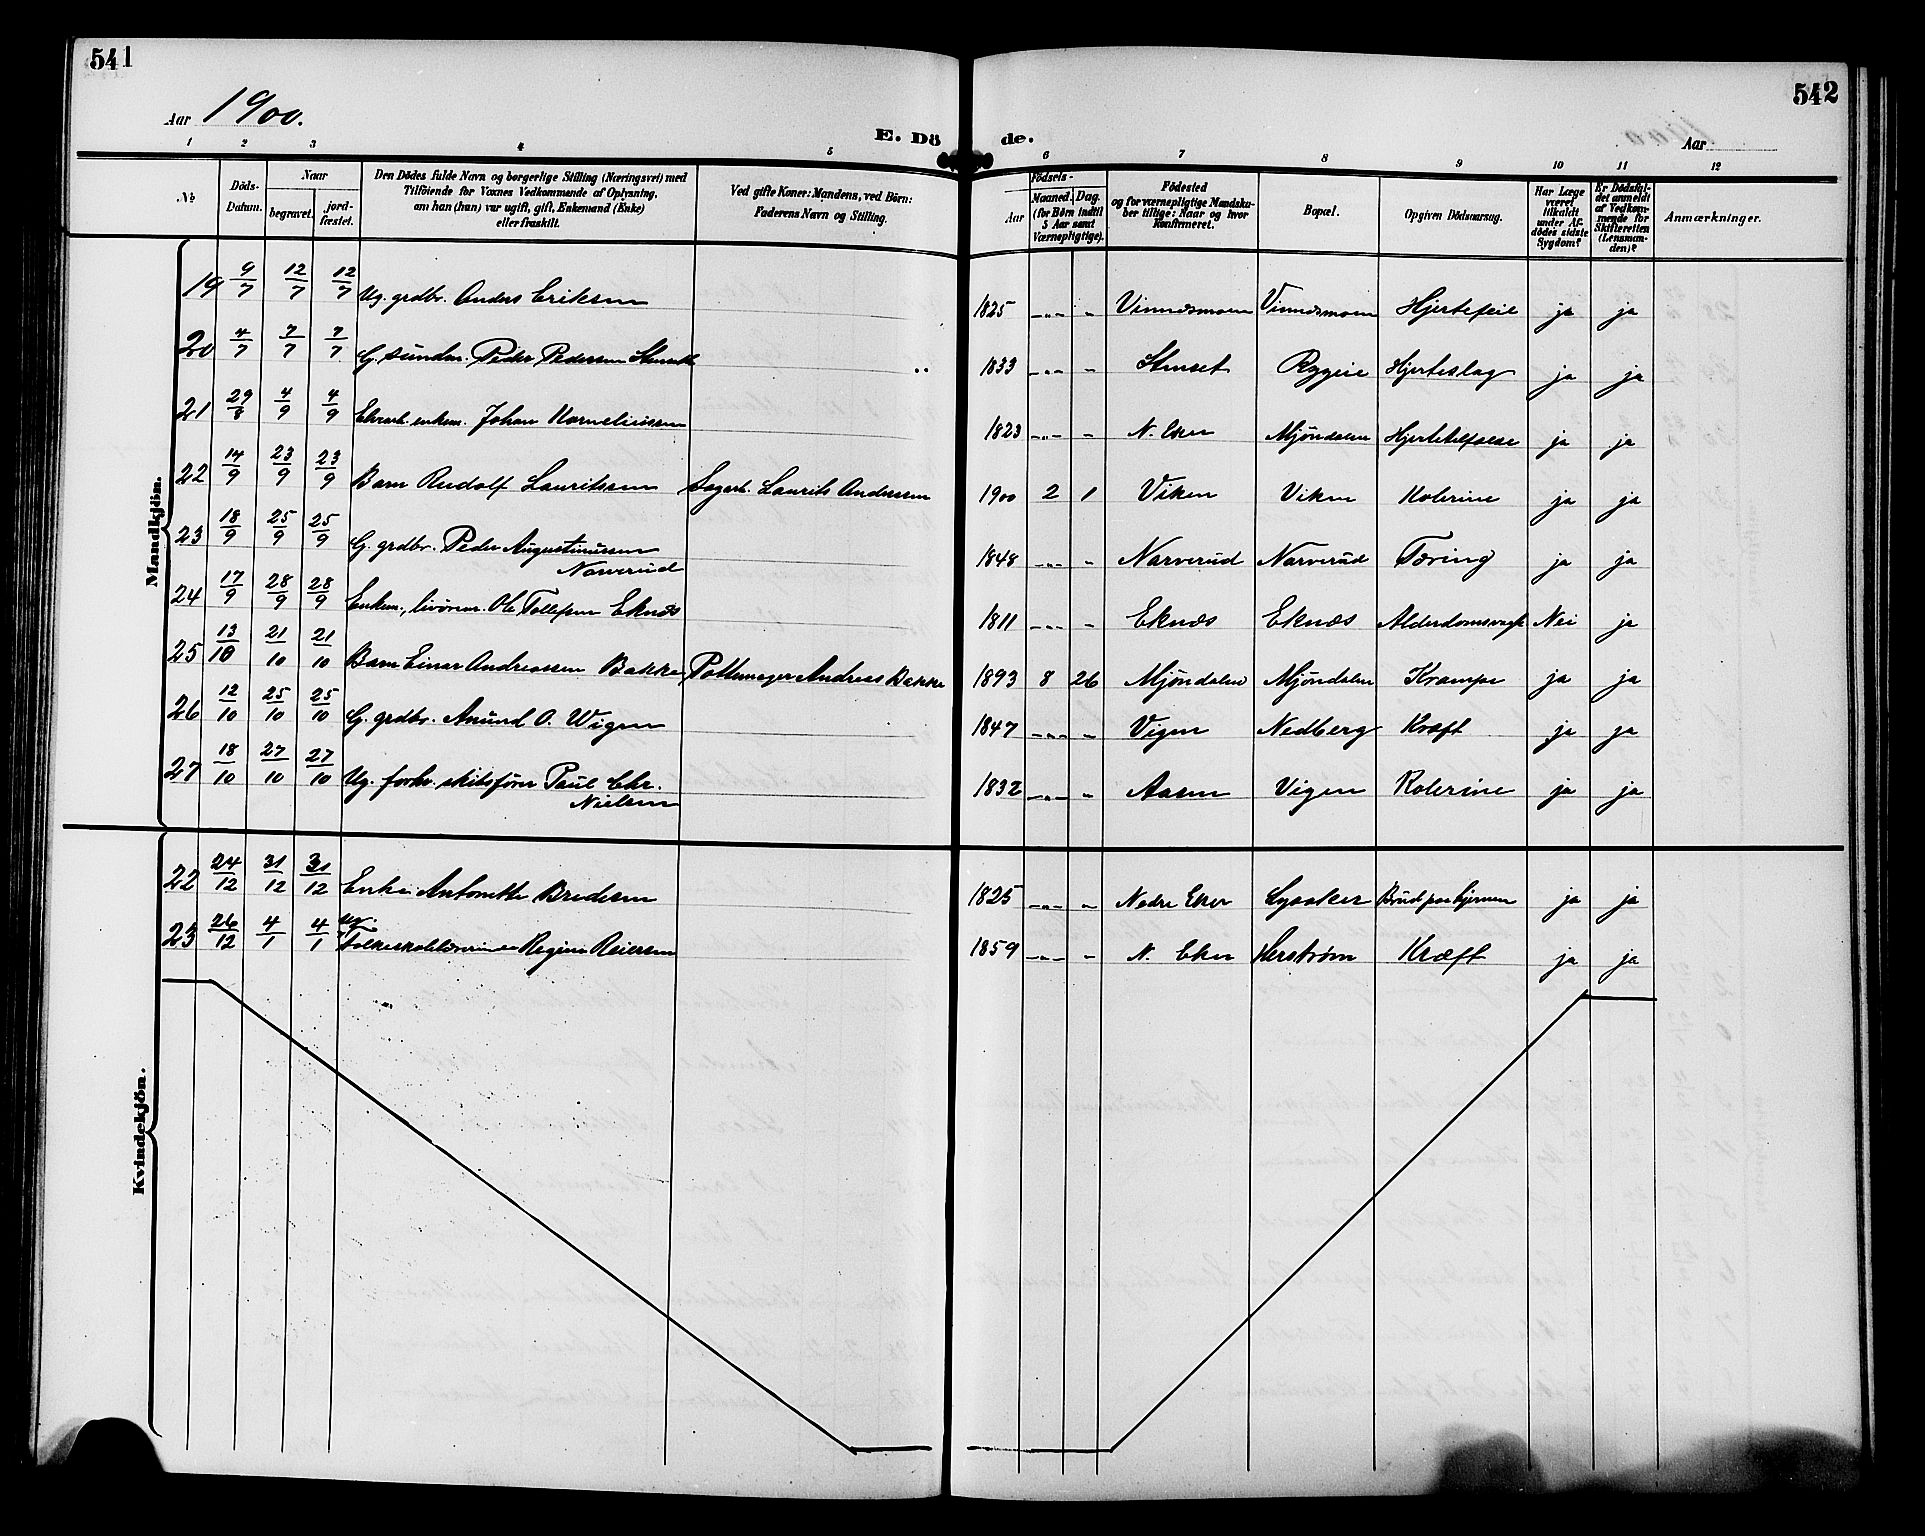 541
542
Aar 1900.
E. Dö de.
Aar
1 2 3 4 5 6 7 8 9 10 11 12
№
Döds-Datum.
Naar
begravet.
jord-fæstet.
Den Dödes fulde Navn og borgerlige Stilling (Næringsvei) med
Tilföiende for Voxnes Vedkommende af Oplysning,
om han (hun) var ugift, gift, Enkemand (Enke)
eller fraskilt.
Ved gifte Koner: Mandens, ved Börn:
Faderens Navn og Stilling.
Födsels-
Aar
Maaned. Dag.
(for Börn indtil
5 Aar samt
Værnepligtige).
Födested
og for værnepligtige Mandska-
ber tillige: Naar og hvor
Konfirmeret.
Bopæl.
Opgiven Dödsaarsag.
Har Læge
været
tilkaldt
under Af-
dödes sidste
Sygdom?
Er Dödsfal-
det anmeldt
af Vedkom-
mende for
Skifteretten
(Lensman-
den)?
Anmærkninger.
Mandkjön.
19 9/7 12/7 12/7 Ug. grdbr. Anders Eriksen 1825 -„- „ Vinnesmoen Vinnesmoen Hjertefeil ja ja
20 4/7 7/7 7/7 G. Peder Pedersen Stenseth 1833 -„- „ Stenset Rygeie Hjerteslag ja ja
21 29/8 4/9 4/9 enkem. Johan Korneliussen 1823 -„- „ N. Eker Mjöndalen ja ja
22 14/9 23/9 23/9 Barn Rudolf Lauritssen Sagarb. Laurits Anderssen 1900 2 1 Viken Viken Kolerine ja ja
23 18/9 25/9 25/9 G. grdbr. Peder Augustinussen
Narverud 1848 -„- „ Narverud Narverud Tæring ja ja
24 17/9 28/9 28/9 Enkem., livörem. Ole Tollefsen Eknæs 1811 -„- „ Eknæs Eknæs Alderdomsvagh Nei ja
25 13/10 21/10 21/10 Barn Einar Andreassen Bakke Pottemager Andreas Bakke 1893 8 26 Mjöndalen Mjöndalen Krampe ja ja
26 12/10 25/10 25/10 G. grdbr. Anund O. Wigen 1847 -„- „ Vigen Nedberg Kræft ja ja
27 18/10 27/10 27/10 Ug. forhv. skibsförer Paul Chr.
Nielsen 1832 -„- „ Aasen Vigen Kolerine ja ja
Kvindekjön.
22 24/12 31/12 31/12 Enke Antonette Bredesen 1825 -„- „ Nedre Eker Lysaker Brud paa hjernen ja ja
23 26/12 4/1 4/1 ug.
Folkeskolelærerinde Regine Reiersen 1859 -„- „ N. Eker Herstrøm Kræft ja ja